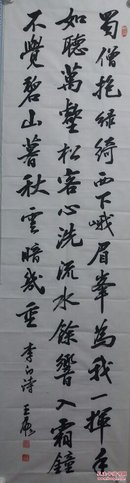 蜀僧抱綠綺西下峨眉峯為我一揮手
如聽萬壑松客心洗流水餘響入霜鐘
不覺碧山暮秋雲暗幾重 李白詩 王